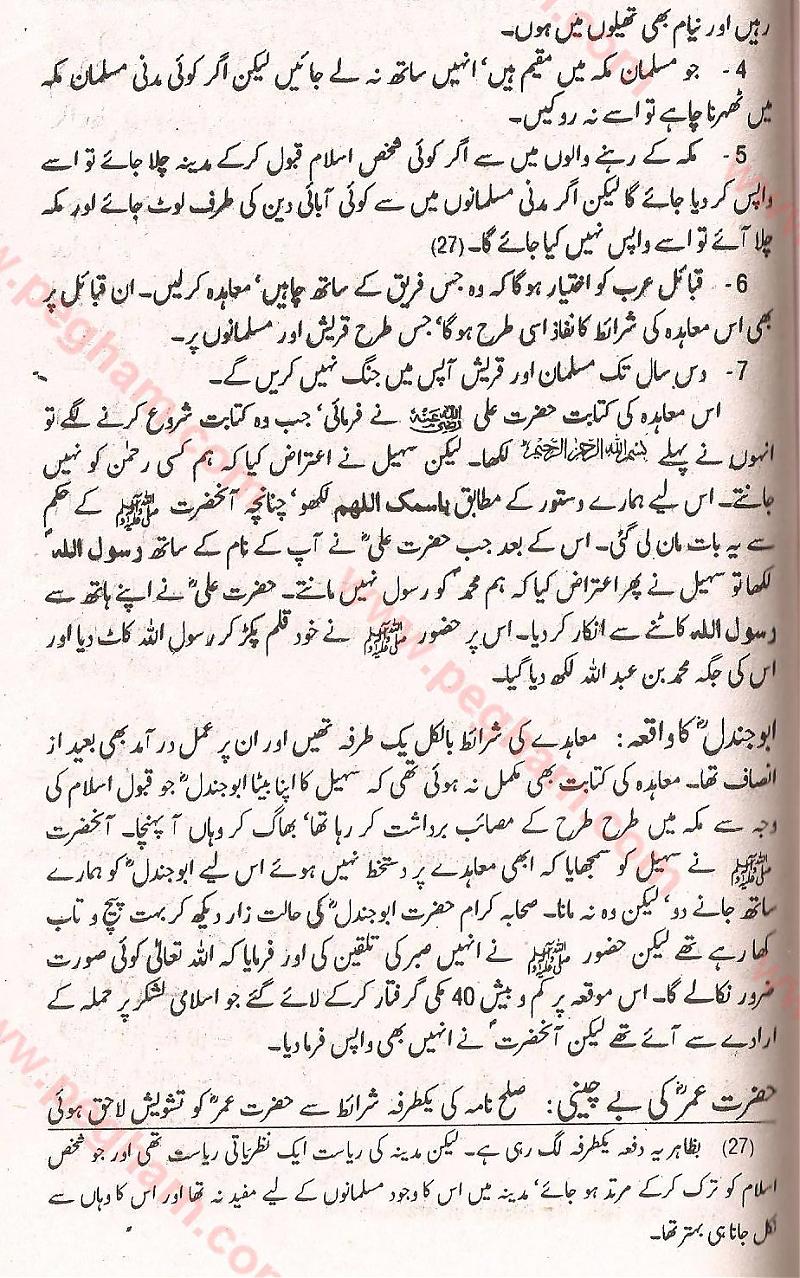 رہیں اور نیام بھی تھیلوں میں ہوں۔
4 - جو مسلمان مکہ میں مقیم ہیں، انہیں ساتھ نہ لے جائیں لیکن اگر کوئی مدنی مسلمان مکہ
میں ٹھہرنا چاہے تو اسے نہ روکیں۔
5 - مکہ کے رہنے والوں میں سے اگر کوئی شخص اسلام قبول کرکے مدینہ چلا جائے تو اسے
واپس کر دیا جائے گا لیکن اگر مدنی مسلمانوں میں سے کوئی آبائی دین کی طرف لوٹ جائے اور مکہ
چلا آئے تو اسے واپس نہیں کیا جائے گا۔ (27)
6 - قبائل عرب کو اختیار ہو گا کہ وہ جس فریق کے ساتھ چاہیں، معاہدہ کرلیں۔ ان قبائل پر
بھی اس معاہدہ کی شرائط کا نفاذ اسی طرح ہوگا، جس طرح قریش اور مسلمانوں پر۔
7 - دس سال تک مسلمان اور قریش آپس میں جنگ نہیں کریں گے۔
اس معاہدہ کی کتابت حضرت علی رضی اللہ عنہ نے فرمائی، جب وہ کتابت شروع کرنے لگے تو
انہوں نے پہلے بسم اللہ الرحمن الرحیم لکھا۔ لیکن سہیل نے اعتراض کیا کہ ہم کسی رحمٰن کو نہیں
جانتے۔ اس لیے ہمارے دستور کے مطابق باسمک اللھم لکھو، چنانچہ آنحضرت ﷺ کے حکم
سے یہ بات مان لی گئی۔ اس کے بعد جب حضرت علیؓ نے آپ کے نام کے ساتھ رسول اللہ
لکھا تو سہیل نے پھر اعتراض کیا کہ ہم محمدؐ کو رسول نہیں مانتے۔ حضرت علیؓ نے اپنے ہاتھ سے
رسول اللہ کاٹنے سے انکار کر دیا۔ اس پر حضور ﷺ نے خود قلم پکڑ کر رسول اللہ کاٹ دیا اور
اس کی جگہ محمد بن عبد اللہ لکھ دیا گیا۔
ابو جندلؓ کا واقعہ: معاہدے کی شرائط بالکل یک طرفہ تھیں اور ان پر عمل در آمد بھی بعید از
انصاف تھا۔ معاہدہ کی کتابت بھی مکمل نہ ہوئی تھی کہ سہیل کا اپنا بیٹا ابو جندلؓ جو قبول اسلام کی
وجہ سے مکہ میں طرح طرح کے مصائب برداشت کر رہا تھا، بھاگ کر وہاں آ پہنچا۔ آنحضرت
ﷺ نے سہیل کو سمجھایا کہ ابھی معاہدے پر دستخط نہیں ہوئے اس لیے ابو جندلؓ کو ہمارے
ساتھ جانے دو، لیکن وہ نہ مانا۔ صحابہ کرام حضرت ابو جندلؓ کی حالت زار دیکھ کر بہت پیچ و تاب
کھا رہے تھے لیکن حضور ﷺ نے انہیں صبر کی تلقین کی اور فرمایا کہ اللہ تعالیٰ کوئی صورت
ضرور نکالے گا۔ اس موقعہ پر کم و بیش 40 مکی گرفتار کرکے لائے گئے جو اسلامی لشکر پر حملہ کے
ارادے سے آئے تھے لیکن آنحضرتؐ نے انہیں بھی واپس فرما دیا۔
حضرت عمرؓ کی بے چینی: صلح نامہ کی یکطرفہ شرائط سے حضرت عمرؓ کو تشویش لاحق ہوئی
(27) بظاہر یہ دفعہ یکطرفہ لگ رہی ہے۔ لیکن مدینہ کی ریاست ایک نظریاتی ریاست تھی اور جو شخص
اسلام کو ترک کرکے مرتد ہو جائے، مدینہ میں اس کا وجود مسلمانوں کے لیے مفید نہ تھا اور اس کا وہاں سے
نکل جانا ہی بہتر تھا۔
www.pegham.com